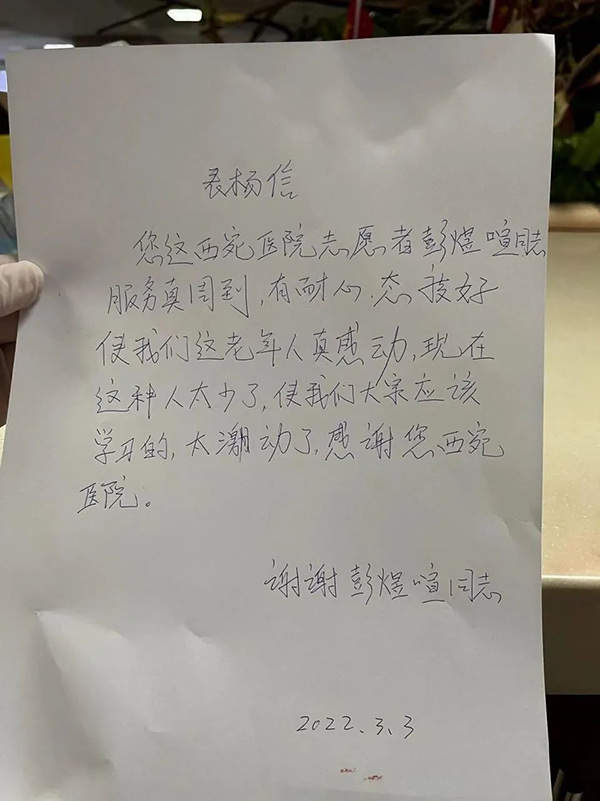 表杨信
您这西宛医院志愿者彭煜喧同志
服务真周到,有耐心.态技好
使我们这老年人真感动,现在
这种人太少了,使我们大家应该
学习的,太潮动了,感谢您西宛
医院。
谢谢彭煜喧同志
2022.3.3